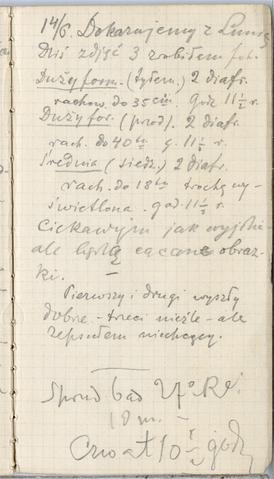 14/6. Dokazujemy z Lunią
Dziś zdjęć 3 zrobiłem fot.
Duży form. (tyłem.) 2 diafr.
rachow. do 35 cm. godz 11 ½ r.
Duży for. (przod). 2 diafr.
rach. do 40 g. 11 ½ r.
Średnia (siedz.) 2 diafr.
rach. do 18 trochę wy-
świetlona. god 11 ½ r.
Ciekawym jak wyjdzie
ale będą cacane obraz-
ki. —
Pierwszy i drugi wyszły
dobrze. - trzeci nieźle - ale
zepsułem niechcący.
10 m. -
10 ½ godz